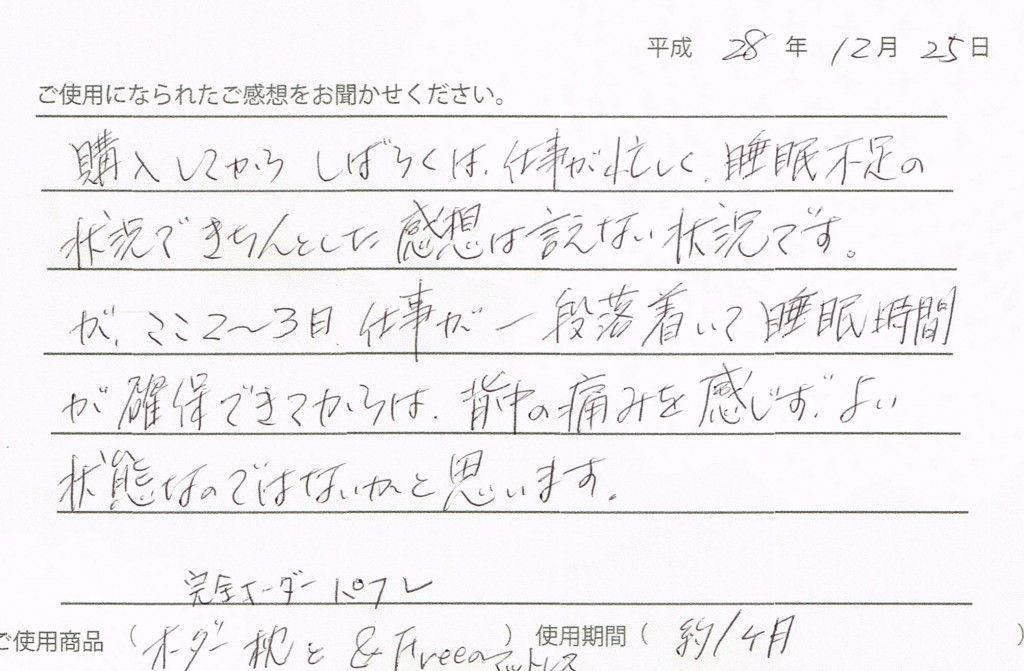 平成 28 年 12 月 25 日
ご使用になられたご感想をお聞かせください。
購入してから しばらくは、仕事が忙しく、睡眠不足の
状況できちんとした感想は言えない状況です。
が、ここ2〜3日、仕事が一段落着いて睡眠時間
が確保できてからは、背中の痛みを感じず、よい
状態なのではないかと思います。
完全オーダー
ご使用商品 ( オーダー枕と & Free マットレス ) 使用期間 ( 約1ヶ月 )